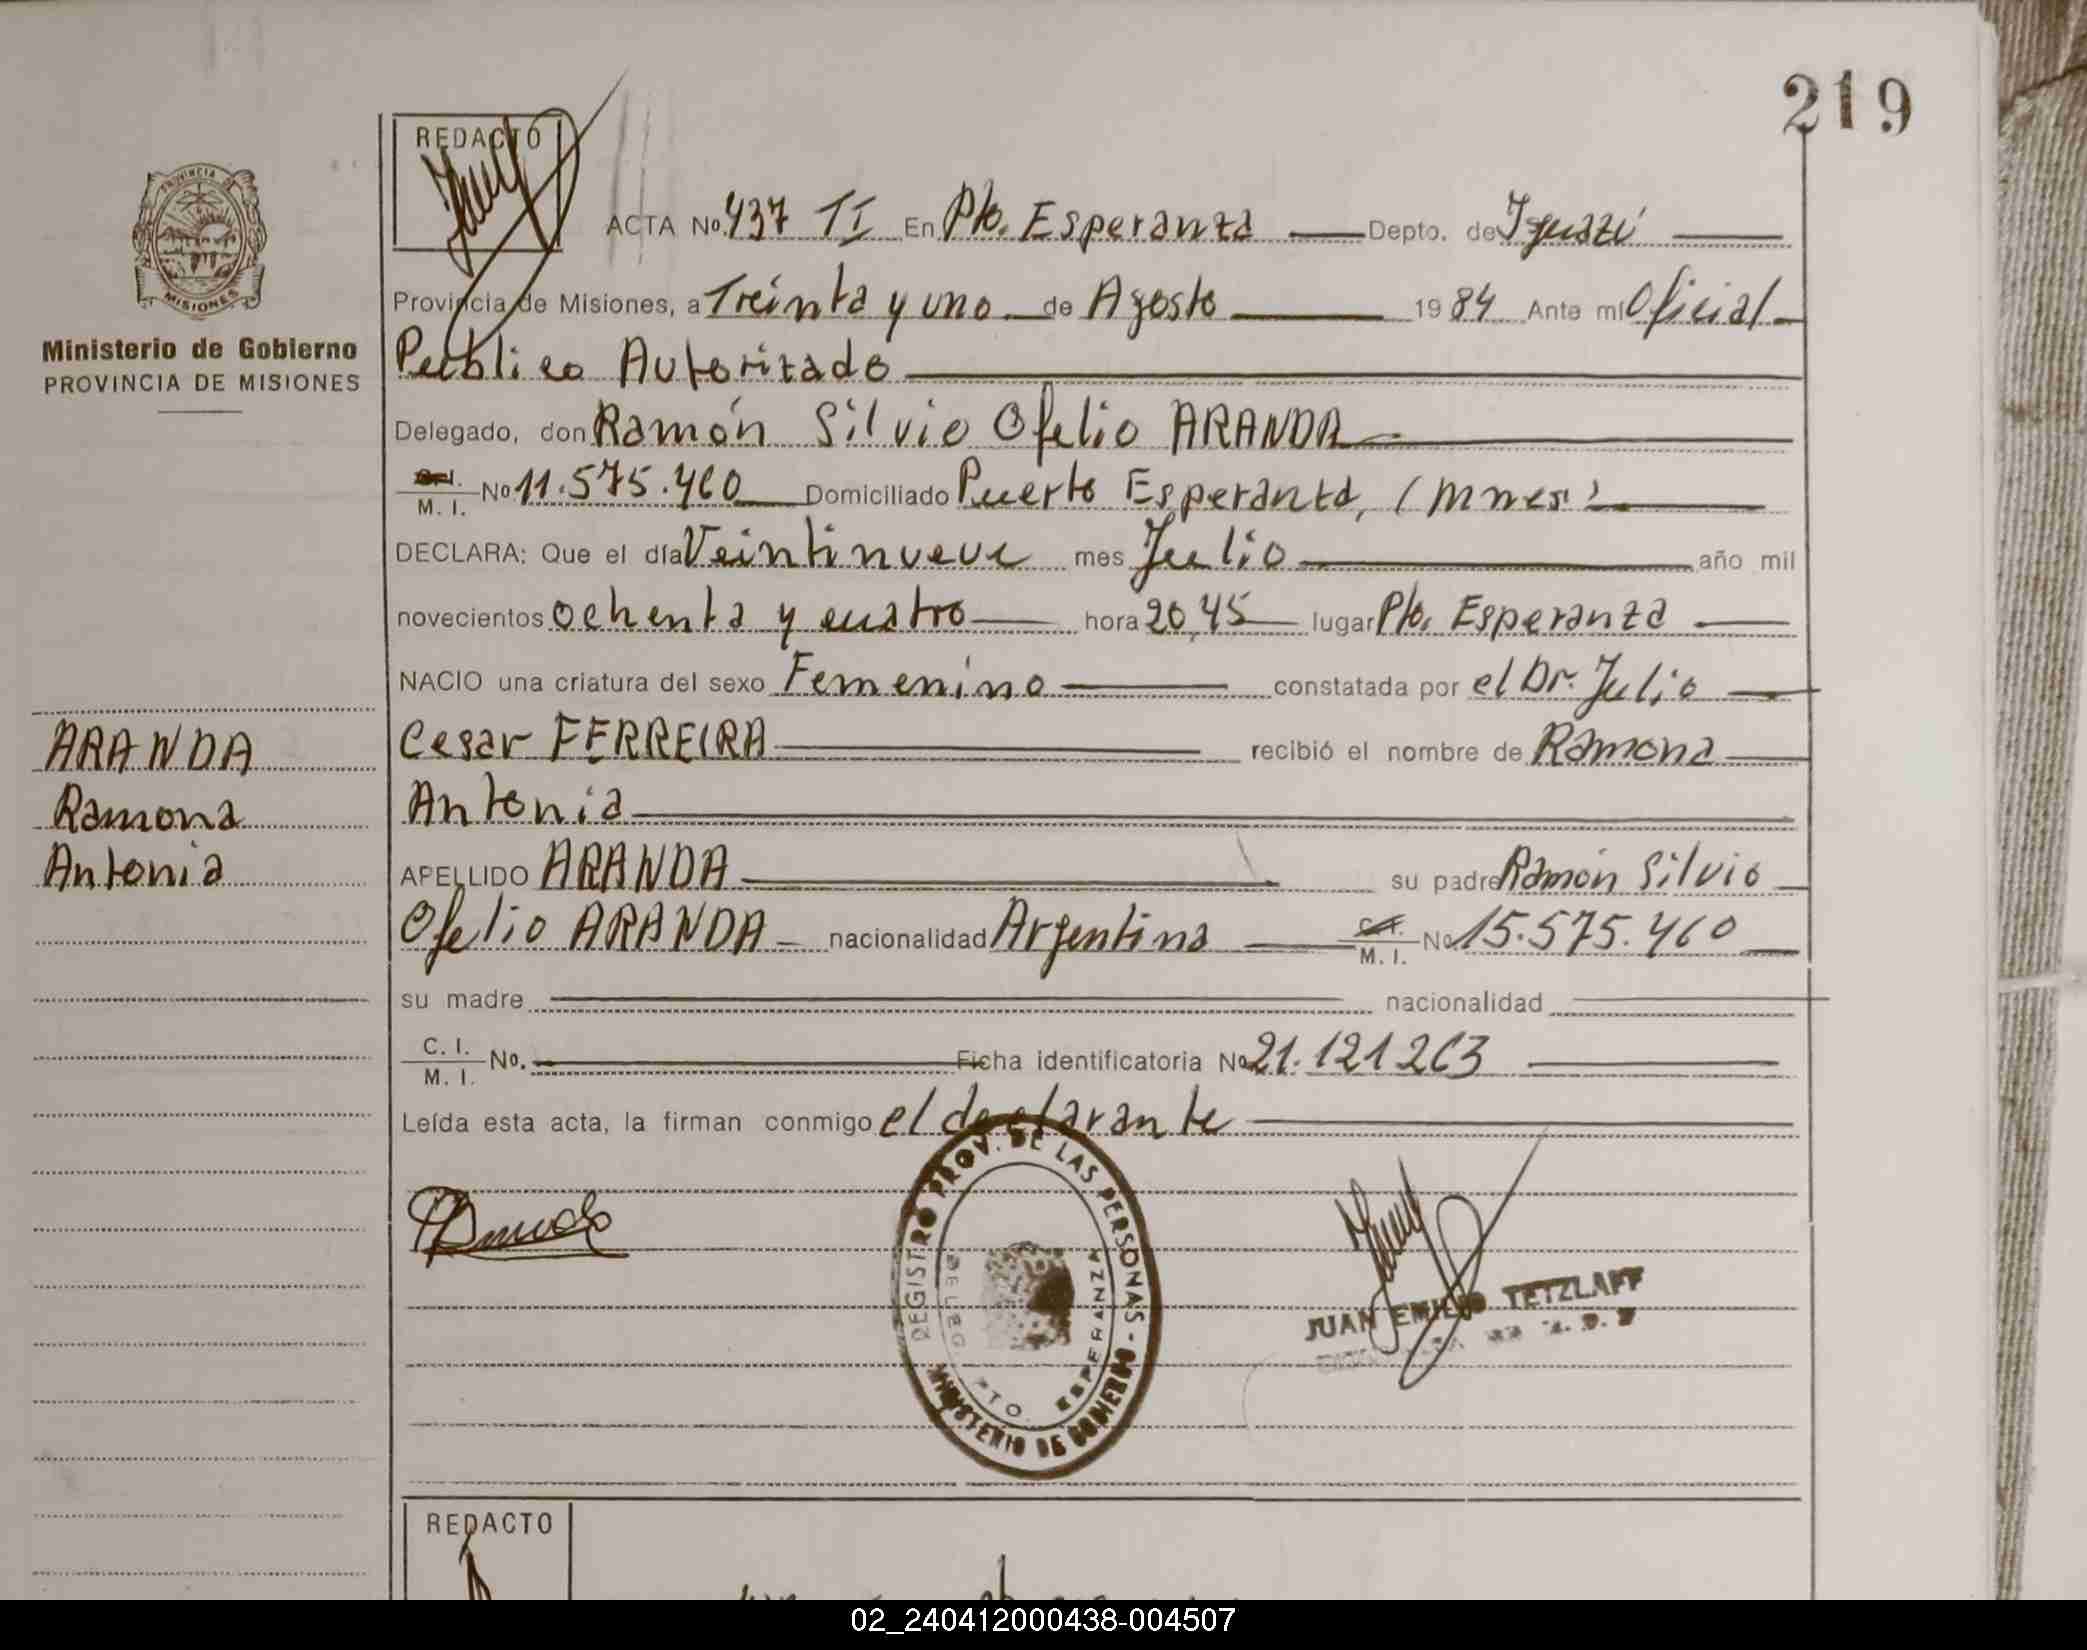 219
REDACTO
PROVINCIA DE
MISIONES
Ministerio de Gobierno
PROVINCIA DE MISIONES
ACTA No. 437 TI En Pto. Esperanza Depto. de Iguazú
Provincia de Misiones, a Treinta y uno de Agosto 1984 Ante mí Oficial
Publico Autorizado
Delegado, don Ramón Silvio Ofelio ARANDA
C.I. / M. I. No 11.575.460 Domiciliado Puerto Esperanza, (Mnes)
DECLARA: Que el día Veintinueve mes Julio año mil
novecientos ochenta y cuatro hora 20,45 lugar Pto. Esperanza
NACIO una criatura del sexo Femenino constatada por el Dr. Julio
Cesar FERREIRA recibió el nombre de Ramona
Antonia
APELLIDO ARANDA su padre Ramón Silvio
Ofelio ARANDA nacionalidad Argentina C.I. / M. I. No. 15.575.460
su madre nacionalidad
C. I. / M. I. No. Ficha identificatoria No 21.121263
Leída esta acta, la firman conmigo el declarante
ARANDA
Ramona
Antonia
REGISTRO PROV. DE LAS PERSONAS - MINISTERIO DE GOBIERNO
DELEG PTO. ESPERANZA
JUAN EMILIO TETZLAFF
REDACTO
02_240412000438-004507